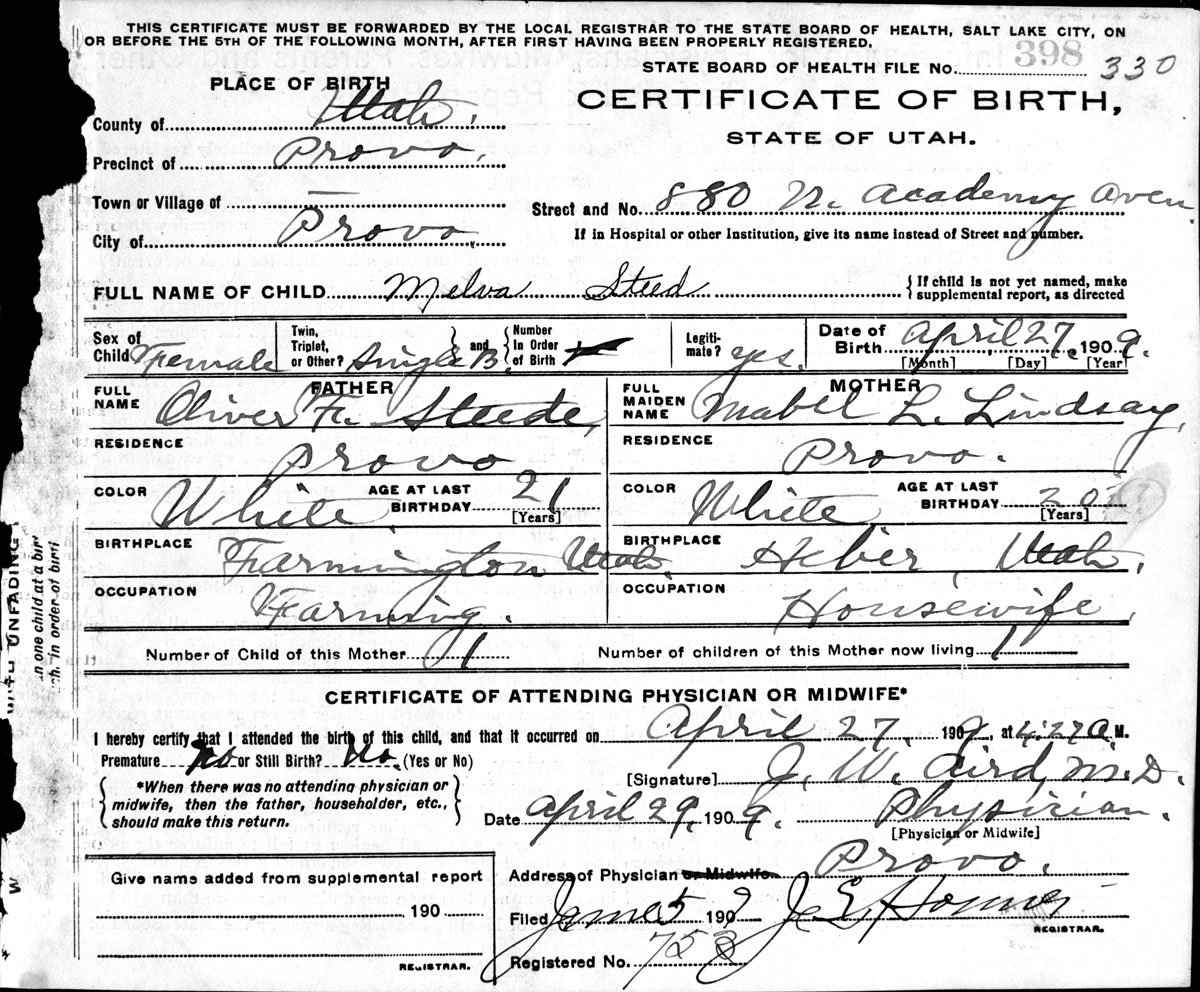 THIS CERTIFICATE MUST BE FORWARDED BY THE LOCAL REGISTRAR TO THE STATE BOARD OF HEALTH, SALT LAKE CITY, ON
OR BEFORE THE 5TH OF THE FOLLOWING MONTH, AFTER FIRST HAVING BEEN PROPERLY REGISTERED.
STATE BOARD OF HEALTH FILE No. 398 330
PLACE OF BIRTH
CERTIFICATE OF BIRTH,
STATE OF UTAH.
County of Utah.
Precinct of Provo.
Town or Village of —
Street and No. 880 N. Academy Aven.
City of Provo.
If in Hospital or other Institution, give its name instead of Street and number.
FULL NAME OF CHILD Melva Steed
{ If child is not yet named, make
supplemental report, as directed
Sex of Child Female
Twin, Triplet, or Other? Single B. } and { Number In Order of Birth
Legiti- mate? yes.
Date of Birth April 27. 1909.
[Month] [Day] [Year]
FATHER
MOTHER
FULL NAME Oliver F. Steede,
FULL MAIDEN NAME Mabel L. Lindsay,
RESIDENCE Provo
RESIDENCE Provo.
COLOR White. AGE AT LAST BIRTHDAY 21 [Years]
COLOR White. AGE AT LAST BIRTHDAY 20 [Years] (?)
BIRTHPLACE Farmington Utah.
BIRTHPLACE Heber, Utah.
OCCUPATION Farming.
OCCUPATION Housewife,
Number of Child of this Mother 1
Number of children of this Mother now living 1
CERTIFICATE OF ATTENDING PHYSICIAN OR MIDWIFE*
I hereby certify that I attended the birth of this child, and that it occurred on April 27. 1909. at 4:27 A. M.
Premature No or Still Birth? No. (Yes or No)
[Signature] J. W. Aird, M.D.
{ *When there was no attending physician or
midwife, then the father, householder, etc.,
should make this return. }
Date April 29. 1909. Physician.
[Physician or Midwife]
Address of Physician or Midwife Provo.
Give name added from supplemental report
190
REGISTRAR.
Filed June 5 1909
REGISTRAR.
Registered No. 753
WITH UNFADING
n one child at a bir
rth. in order of birt